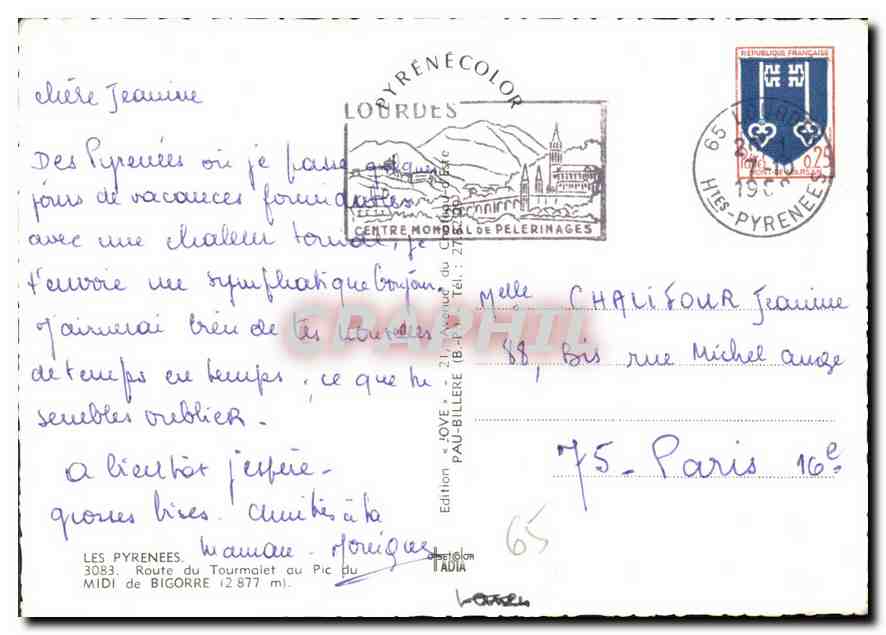 chère Jeannine
Des Pyrenées où je passe quelques
jours de vacances formidables
avec une chaleur torride, je
t'envoie un symphatique bonjour.
J'aimerai bien de tes nouvelles
de temps en temps, ce que tu
sembles oublier.
A bientôt j'espère -
grosses bises. Amitiés à ta
Maman - Monique
LES PYRENEES.
3083. Route du Tourmalet au Pic du
MIDI de BIGORRE (2 877 m).
PYRÉNÉCOLOR
LOURDES
CENTRE MONDIAL DE PELERINAGES
Edition « JOVE » - 21, Avenue du
PAU-BILLERE (B.-P.) Tél. : 27
offset color
IADTA
CPAPHIL
RÉPUBLIQUE FRANÇAISE
0,25
MONT-DE-MARSAN
65 LOURDES
Htes-PYRENEES
Melle CHALIFOUR Jeannine
88, Bis rue Michel ange
75 - Paris 16e
65